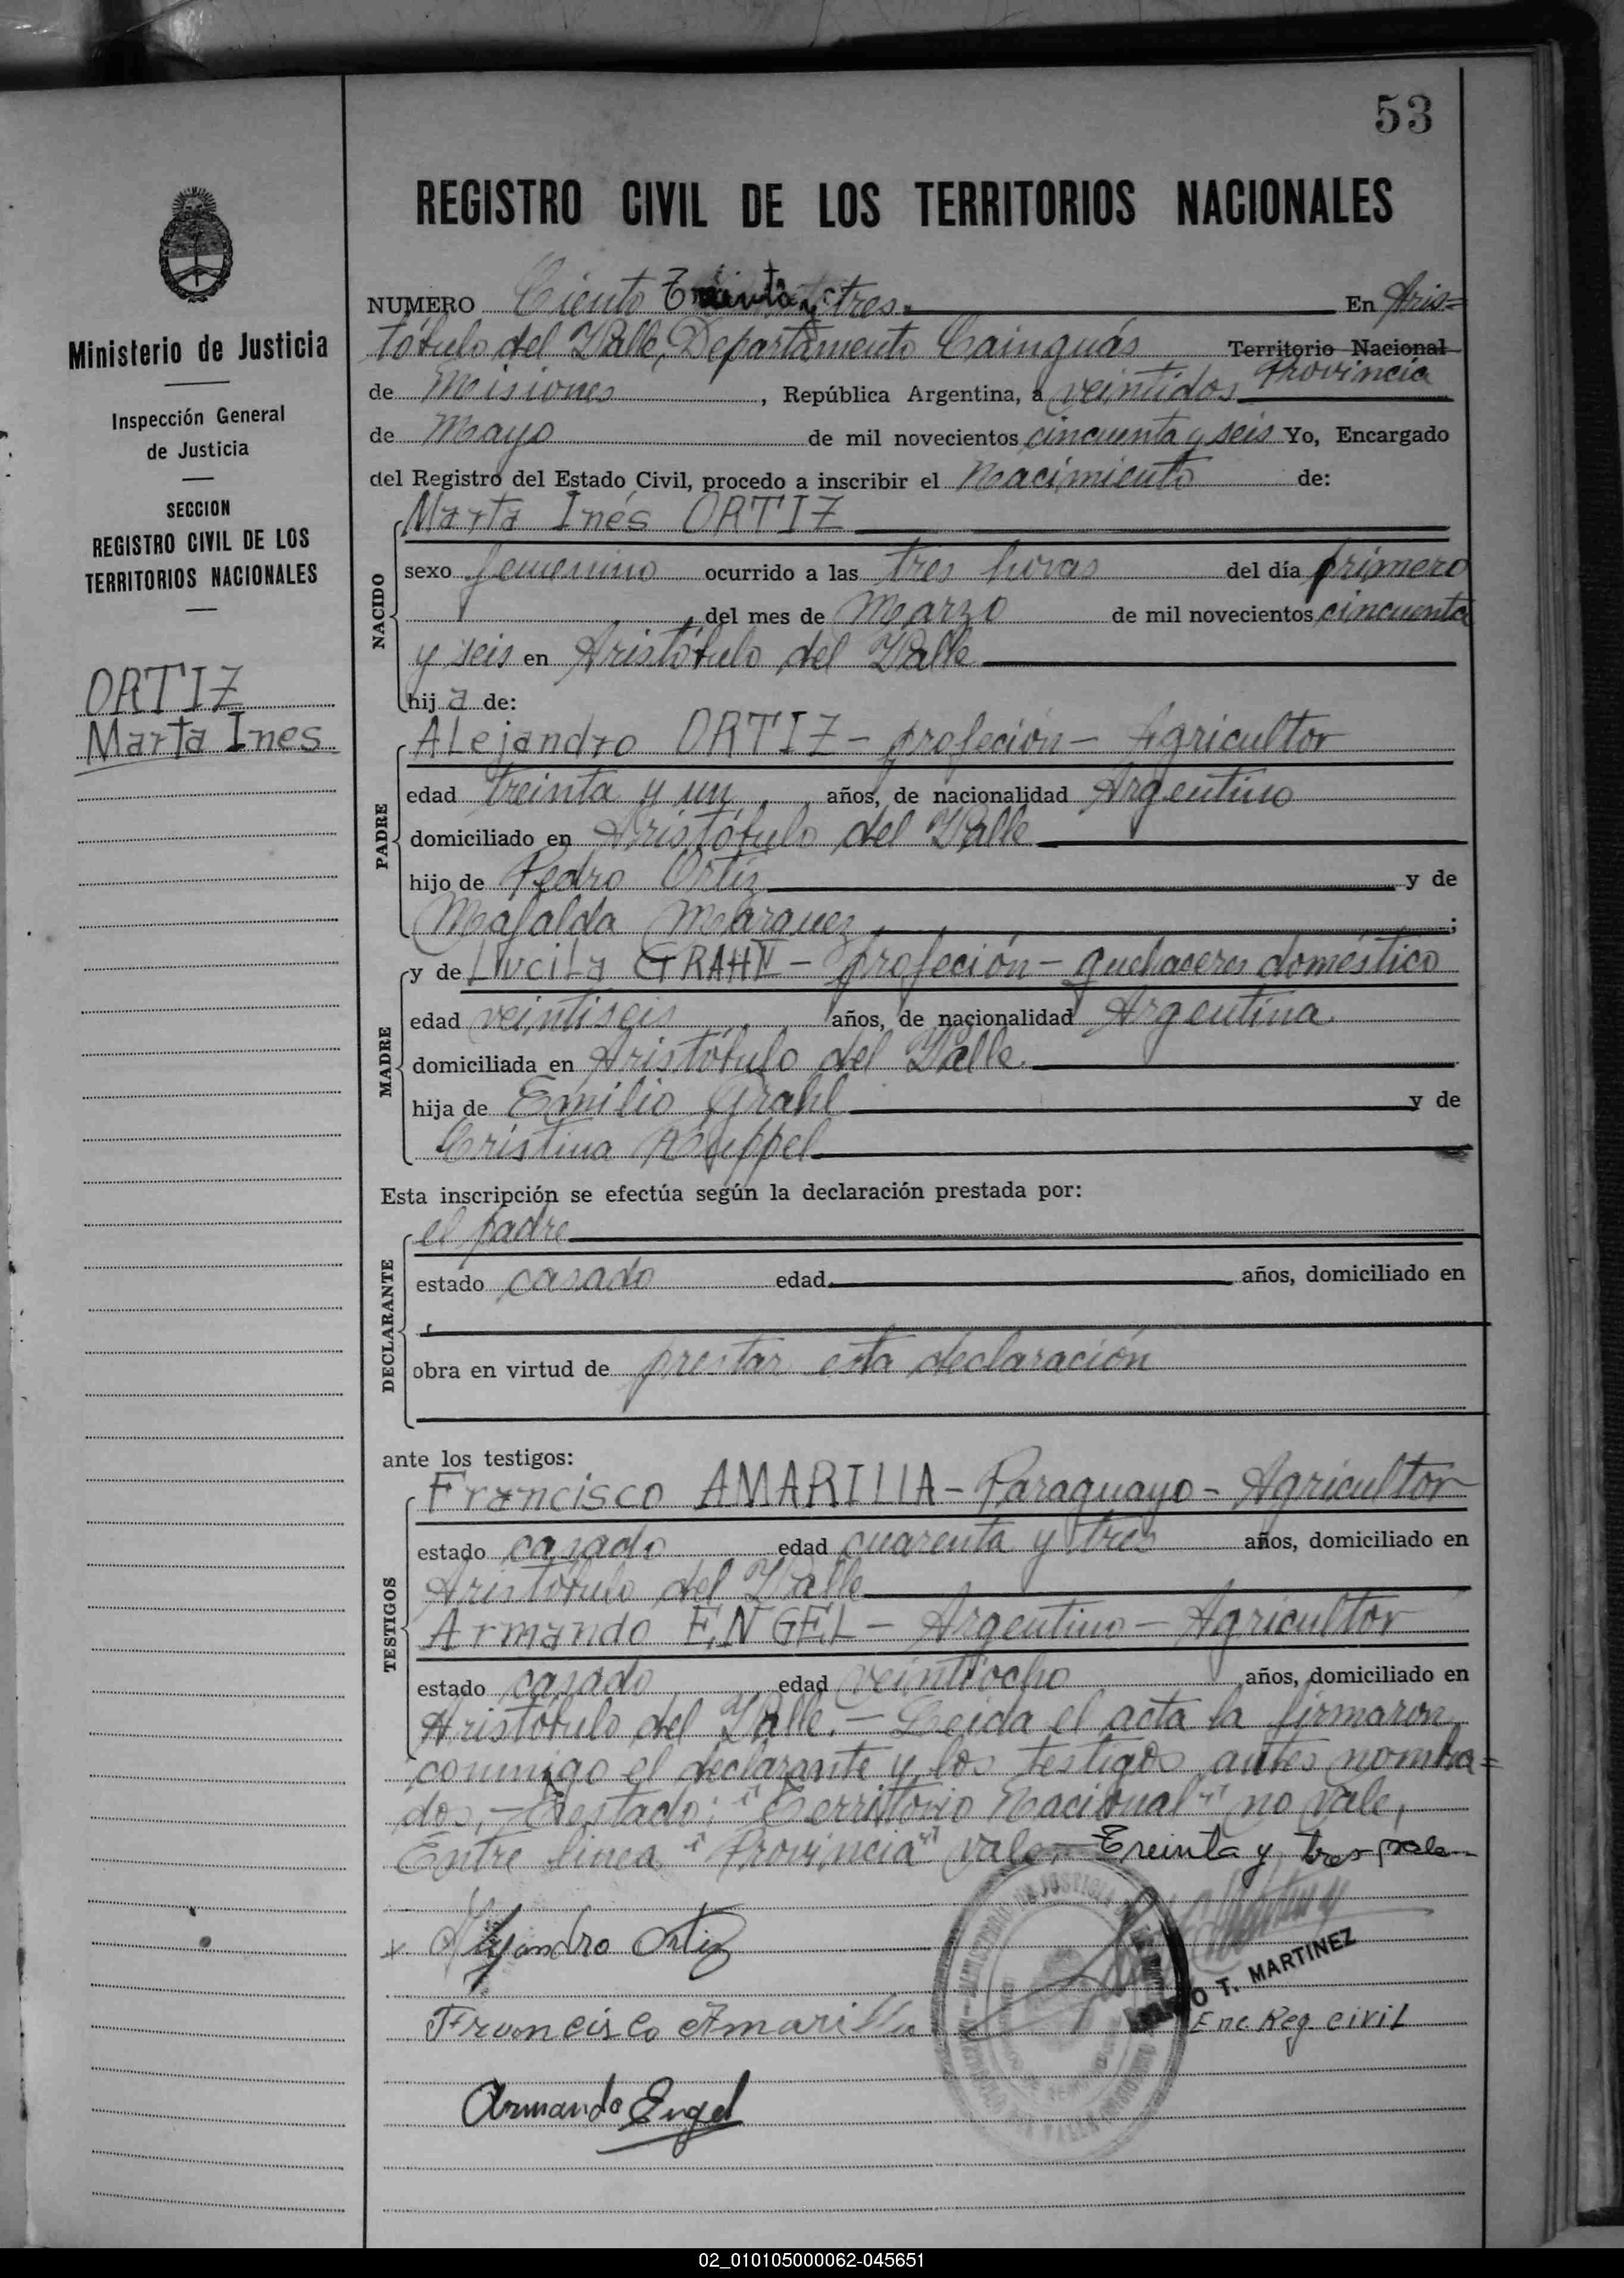 53
REGISTRO CIVIL DE LOS TERRITORIOS NACIONALES
Ministerio de Justicia
Inspección General
de Justicia
SECCION
REGISTRO CIVIL DE LOS
TERRITORIOS NACIONALES
ORTIZ
Marta Ines
NUMERO Ciento Treinta y tres. En Aris=
tóbulo del Valle, Departamento Cainguás Territorio Nacional
Provincia
de Misiones, República Argentina, a veintidos
de Mayo de mil novecientos cincuenta y seis Yo, Encargado
del Registro del Estado Civil, procedo a inscribir el Nacimiento de:
NACIDO
Marta Inés ORTIZ
sexo femenino ocurrido a las tres horas del día primero
del mes de Marzo de mil novecientos cincuenta
y seis en Aristóbulo del Valle
hija de:
PADRE
ALejandro ORTIZ - profeción - Agricultor
edad treinta y un años, de nacionalidad Argentino
domiciliado en Aristóbulo del Valle
hijo de Pedro Ortiz y de
Mafalda Marquez;
MADRE
y de LuciLa GRAHL - profeción - quehaceres doméstico
edad veintiseis años, de nacionalidad Argentina.
domiciliada en Aristóbulo del Valle.
hija de Emilio Grahl y de
Cristina
Esta inscripción se efectúa según la declaración prestada por:
DECLARANTE
el padre
estado casado edad años, domiciliado en
obra en virtud de prestar esta declaración
ante los testigos:
TESTIGOS
Francisco AMARILLA - Paraguayo - Agricultor
estado casado edad cuarenta y tres años, domiciliado en
Aristóbulo del Valle
Armando ENGEL - Argentino - Agricultor
estado casado edad veintiocho años, domiciliado en
Aristóbulo del Valle. - Leida el acta la firmaron
conmigo el declarante y los testigos antes nombra=
dos. - Testado: "Territorio Nacional" no vale,
Entre linea "Provincia" vale. - Treinta y tres vale
Alejandro Ortiz
Francisco Amarilla
O T. MARTINEZ
Enc. Reg. civiL
Armando Engel
02_010105000062-045651